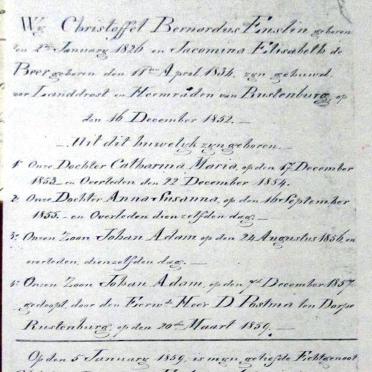 Wij Christoffel Bernardus Enslin geboren
den 2den January 1826 en Jacomina Elisabeth de
Beer geboren den 11den April 1834, zyn gehuwd
voor Landdrost en Heemraden van Rustenburg, op
den 16 December 1852. —
— Uit dit huwelyk zyn geboren —
1e Onze Dochter Catharina Maria, op den 17 December
1853 — en Overleden den 22 December 1854. —
2e Onze Dochter Anna Susanna, op den 16 September
1855. — en Overleden dienzelfden dag. —
3e Onzen Zoon Johan Adam, op den 24 Augustus 1856, en
overleden, dienzelfden dag. —
4e Onzen Zoon Johan Adam, op den 7de December 1857,
gedoopt, door den Eerw. Heer D Postma ten Dorpe
Rustenburg, op den 20ste Maart 1859. —
Op den 5 January 1859, is myn geliefde Echtgenoot